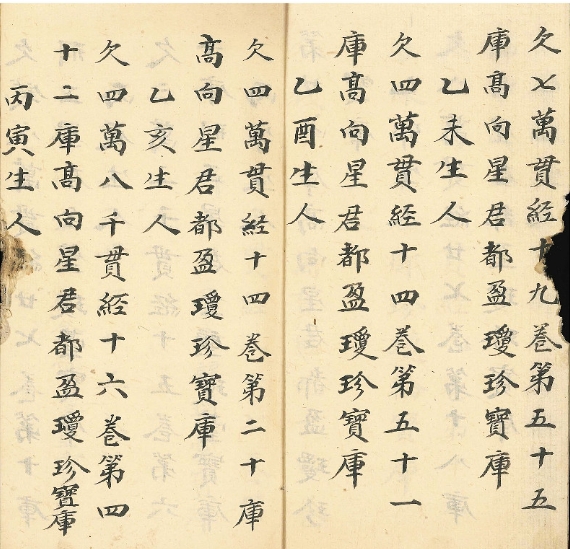 欠七萬貫經十九卷第五十五
庫高向星君都盈瓊珍寶庫
乙未生人
欠四萬貫經十四卷第五十一
庫高向星君都盈瓊珍寶庫
乙酉生人
欠四萬貫經十四卷第二十庫
高向星君都盈瓊珍寶庫
乙亥生人
欠四萬八千貫經十六卷第四
十二庫高向星君都盈瓊珍寶庫
丙寅生人